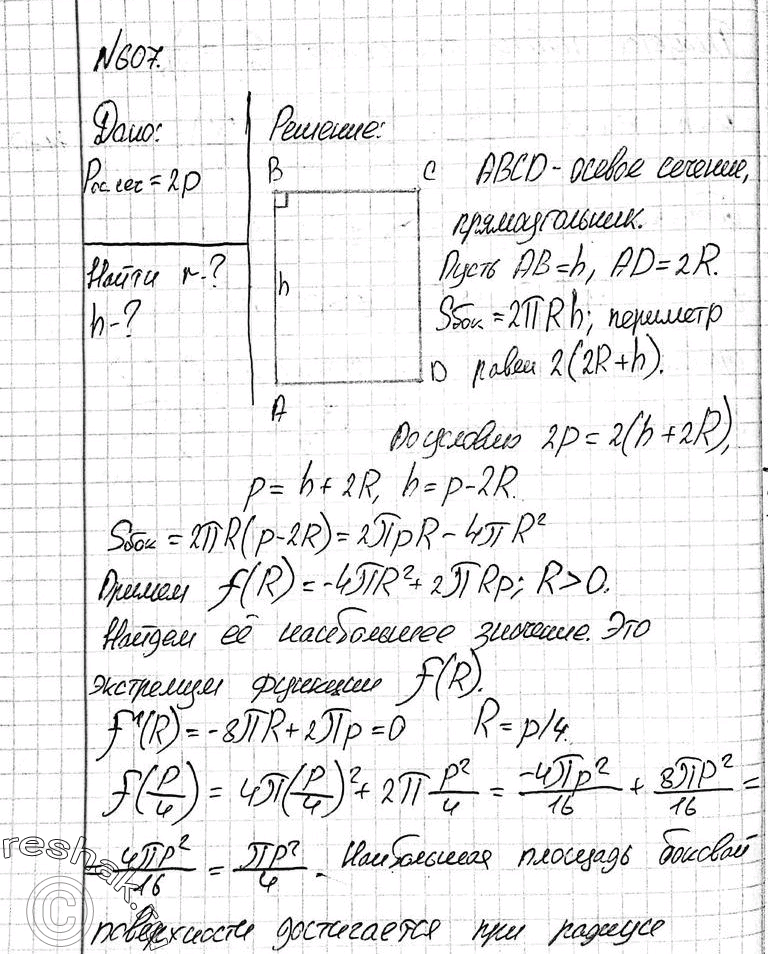 N607.
Дано:
Pос.сеч = 2p
Найти r-?
h-?
Решение:
B
C
h
A
D
ABCD - осевое сечение,
прямоугольник.
Пусть AB=h, AD=2R.
Sбок = 2πRh; периметр
равен 2(2R+h).
По условию 2p = 2(h+2R),
p = h + 2R, h = p-2R.
Sбок = 2πR(p-2R) = 2πpR - 4πR²
Примем f(R) = -4πR² + 2πRp; R>0.
Найдем её наибольшее значение. Это
экстремум функции f(R).
f'(R) = -8πR + 2πp = 0 R = p/4.
f(p/4) = 4π(p/4)² + 2π p²/4 = -4πp²/16 + 8πp²/16 =
4πp²/16 = πp²/4. Наибольшая площадь боковой
поверхности достигается при радиусе
reshak.ru
©